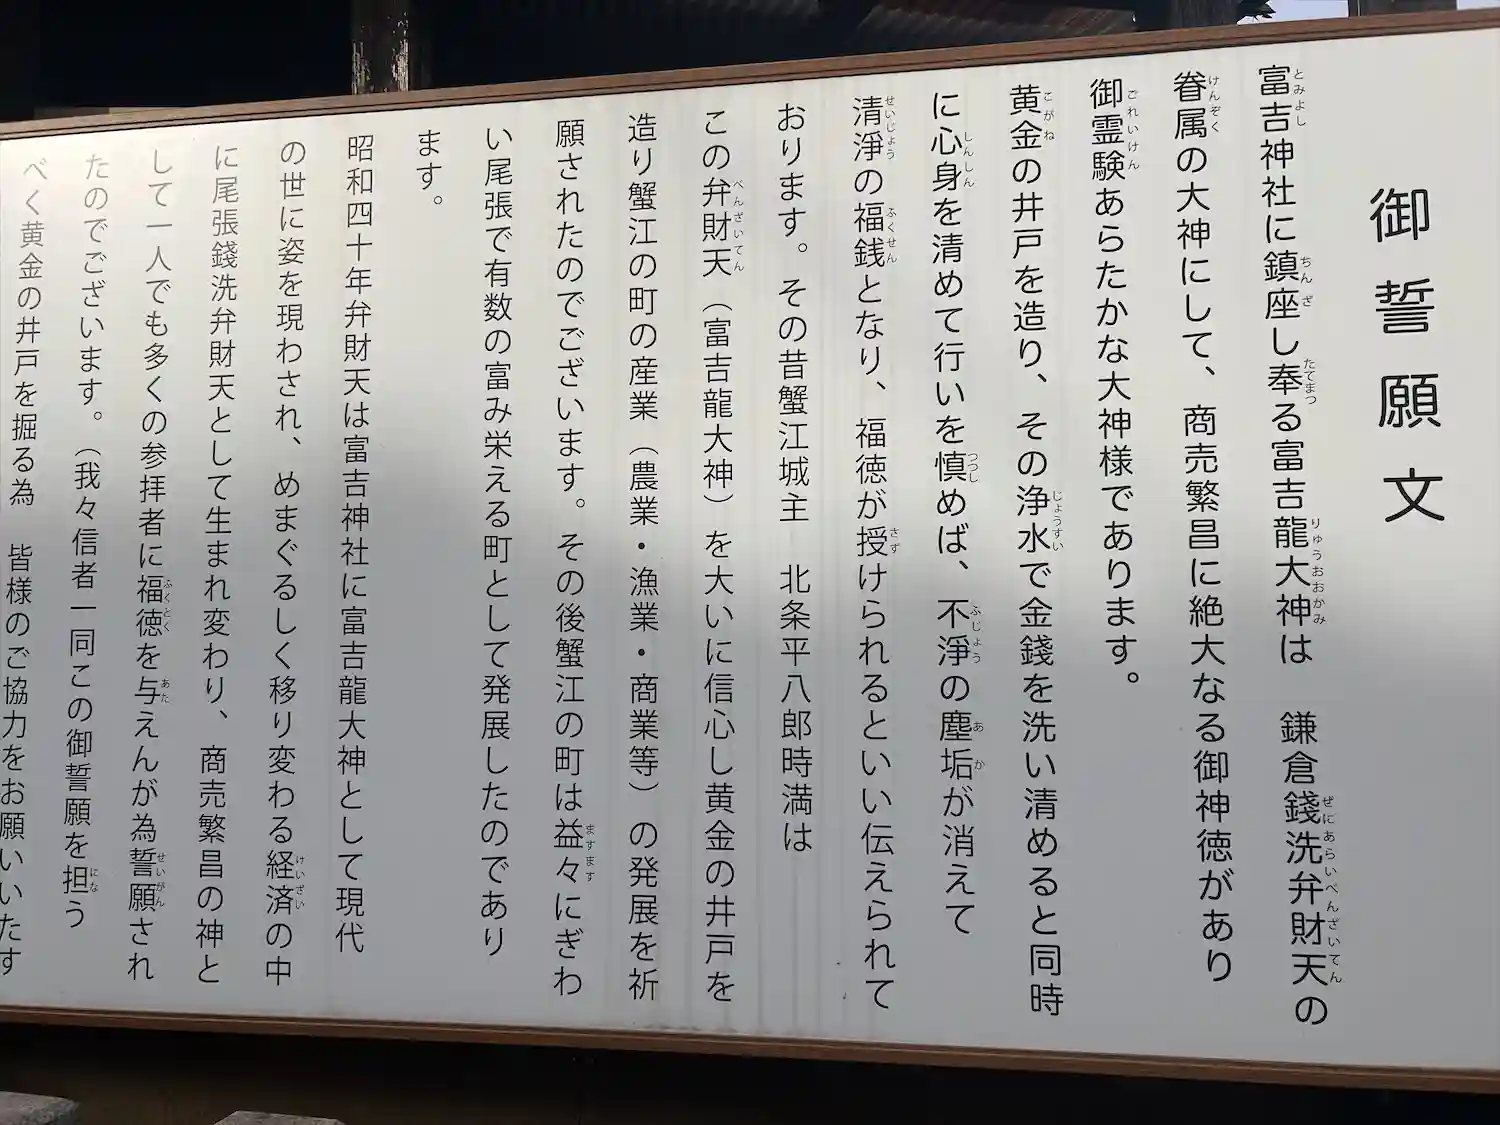 御誓願文
富吉神社に鎮座し奉る富吉龍大神は　鎌倉錢洗弁財天の
眷属の大神にして、商売繁昌に絶大なる御神徳があり
御霊験あらたかな大神様であります。
黄金の井戸を造り、その浄水で金錢を洗い清めると同時
に心身を清めて行いを慎めば、不淨の塵垢が消えて
清淨の福銭となり、福徳が授けられるといい伝えられて
おります。その昔蟹江城主　北条平八郎時満は
この弁財天（富吉龍大神）を大いに信心し黄金の井戸を
造り蟹江の町の産業（農業・漁業・商業等）の発展を祈
願されたのでございます。その後蟹江の町は益々にぎわ
い尾張で有数の富み栄える町として発展したのであり
ます。
昭和四十年弁財天は富吉神社に富吉龍大神として現代
の世に姿を現わされ、めまぐるしく移り変わる経済の中
に尾張錢洗弁財天として生まれ変わり、商売繁昌の神と
して一人でも多くの参拝者に福徳を与えんが為誓願され
たのでございます。（我々信者一同この御誓願を担う
べく黄金の井戸を掘る為　皆様のご協力をお願いいたす